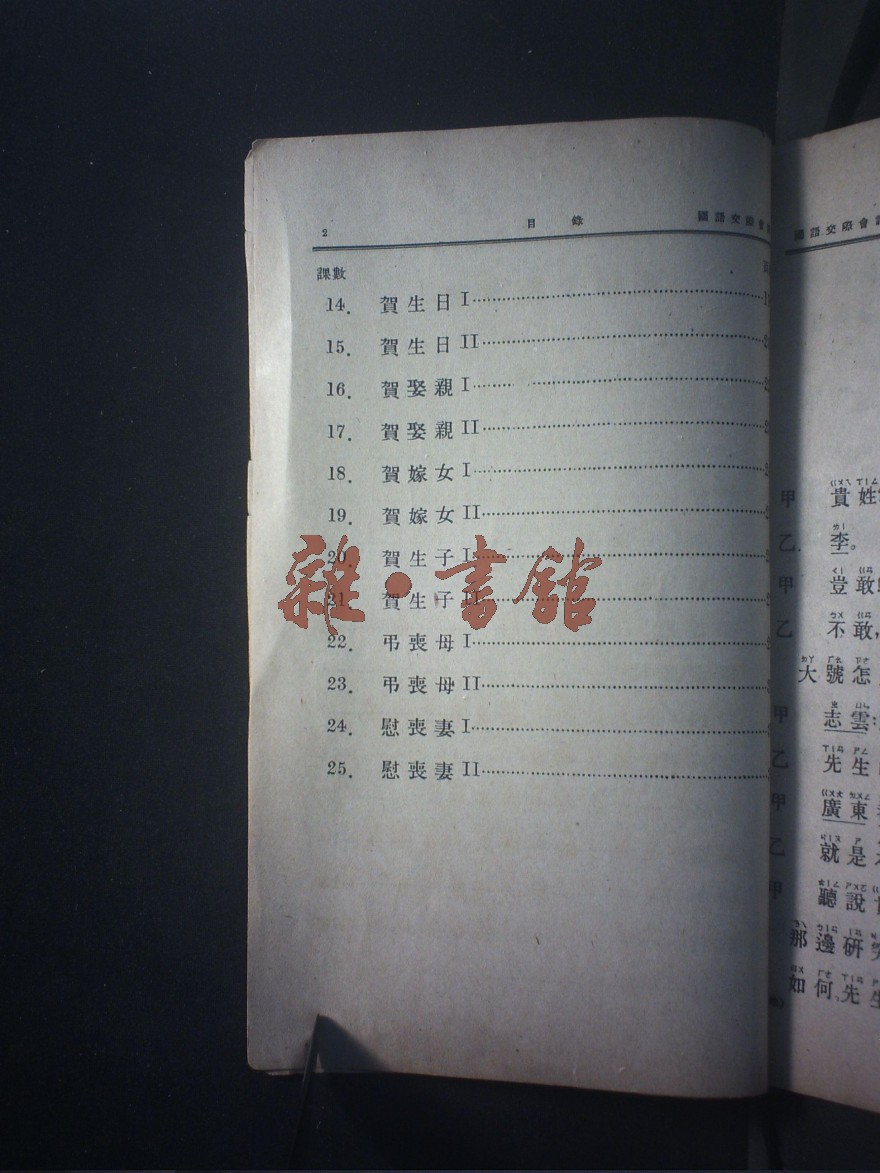 2 目錄 國語交際會
課數
14. 賀生日 I
15. 賀生日 II
16. 賀娶親 I
17. 賀娶親 II
18. 賀嫁女 I
19. 賀嫁女 II
20. 賀生子 I
21. 賀生子 II
22. 弔喪母 I
23. 弔喪母 II
24. 慰喪妻 I
25. 慰喪妻 II
雜·書館
國語交際會
甲 貴姓
乙 李。
甲 豈敢
乙 不敢,
大號怎
甲 志雲
乙 先生
甲 廣東
乙 就是
甲 聽說
那邊研究
如何,先生